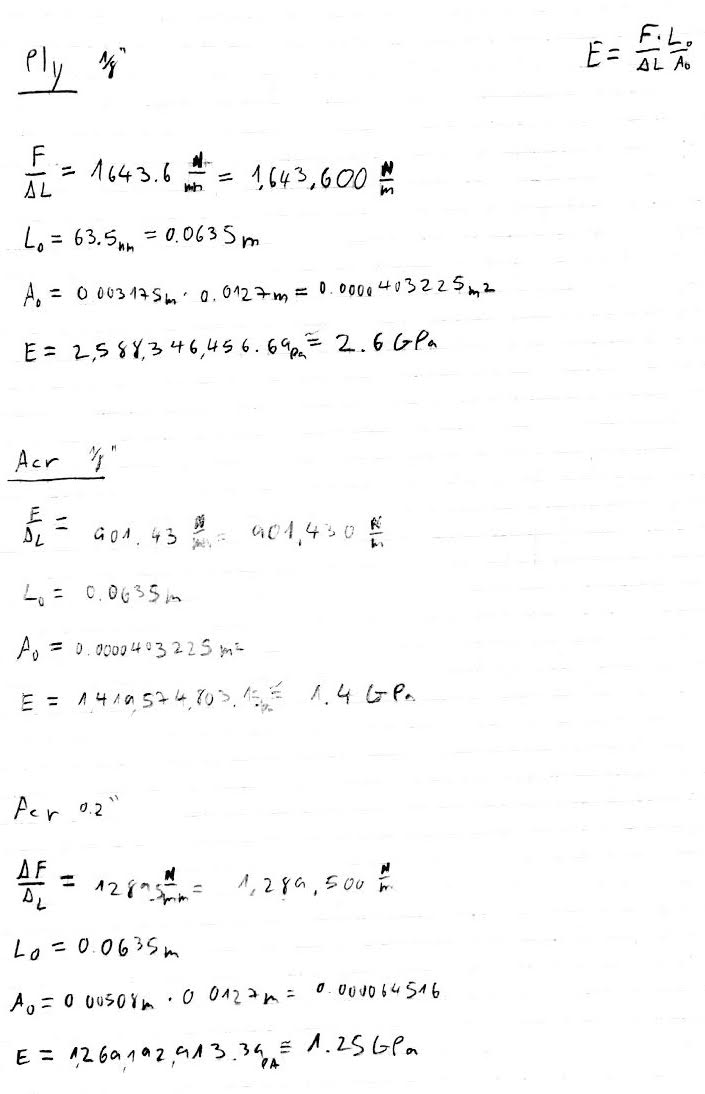 Ply 1/8" E = F·L₀ / ΔL A₀
F/ΔL = 1643.6 N/mm = 1,643,600 N/m
L₀ = 63.5mm = 0.0635m
A₀ = 0.003175m · 0.0127m = 0.0000403225m2
E = 2,588,346,456.69Pa ≅ 2.6 GPa
Acr 1/8"
F/ΔL = 901.43 N/mm = 901,430 N/m
L₀ = 0.0635m
A₀ = 0.0000403225m2
E = 1,419,574,803.15Pa ≅ 1.4 GPa
Acr 0.2"
ΔF/ΔL = 1289.5 N/mm = 1,289,500 N/m
L0 = 0.0635m
A₀ = 0.00508m · 0.0127m = 0.000064516
E = 1,269,192,913.39PA ≅ 1.25GPa